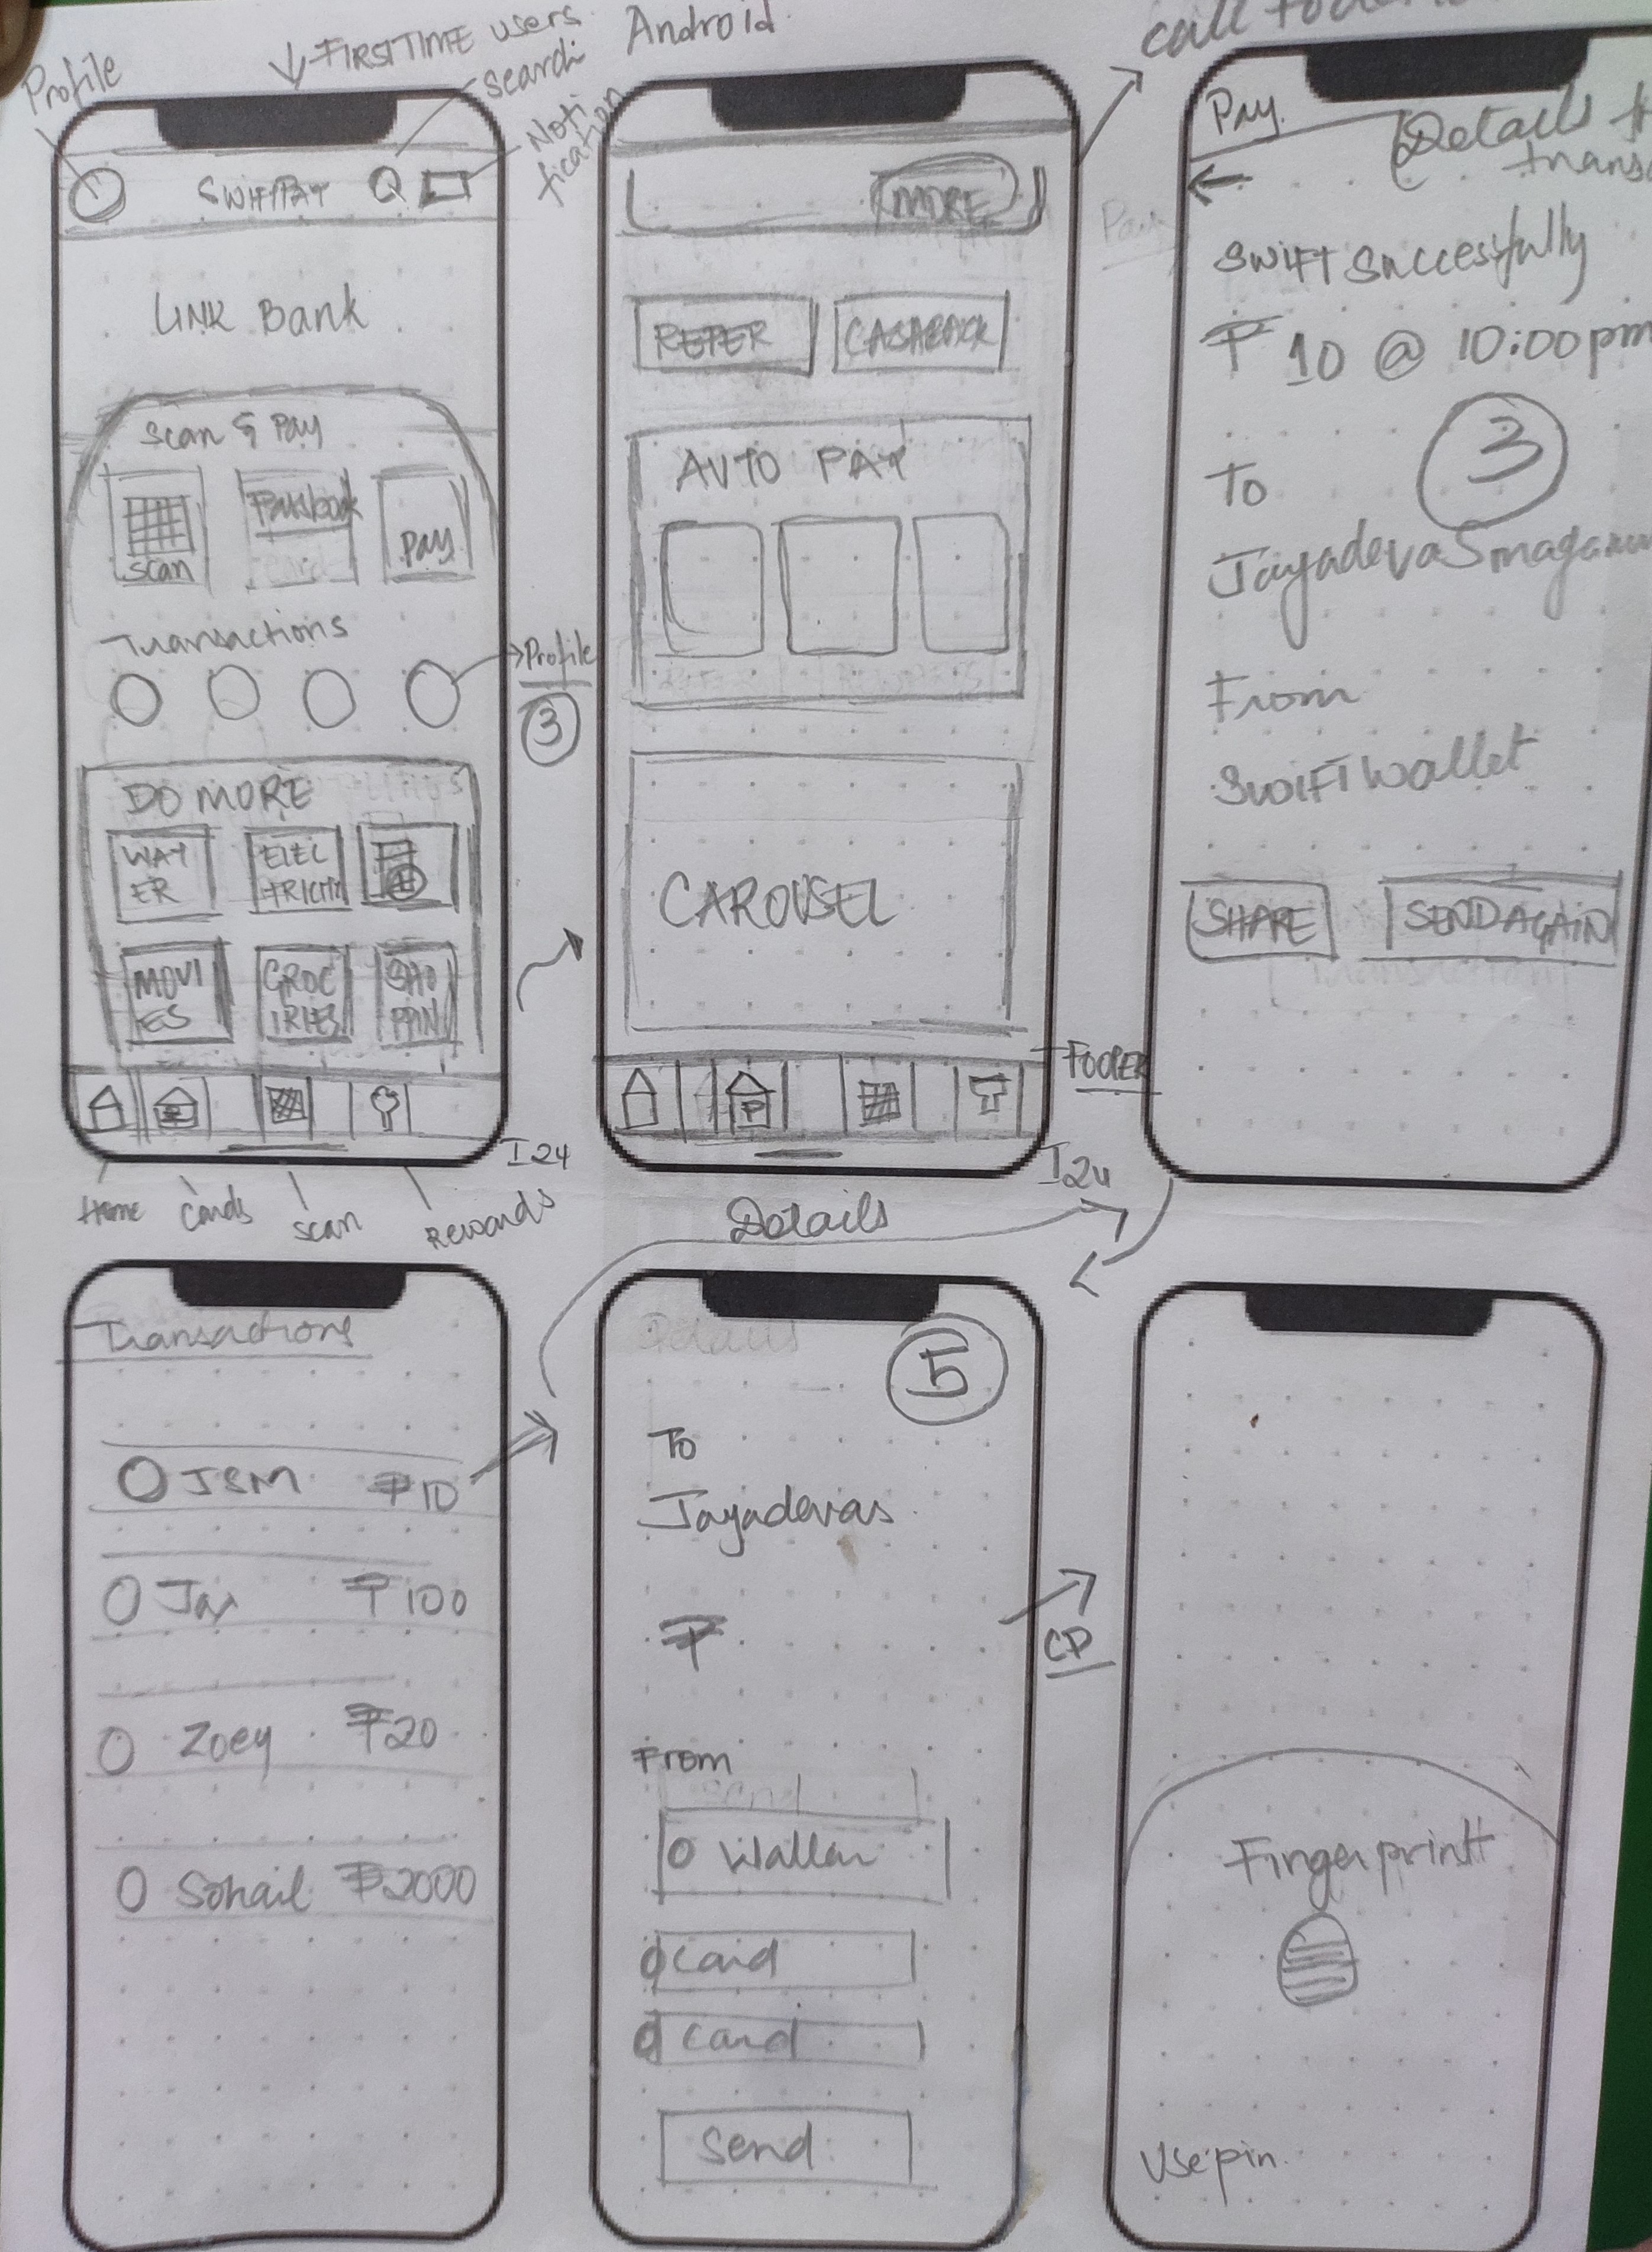 Profile
FIRST TIME users
Android
search
Noti
fication
SWIFTPAY
LINK Bank
Scan & Pay
Scan
Passbook
Pay
Transactions
Profile
3
DO MORE
WAT
ER
ELEC
TRICITY
MOVI
ES
GROC
IRIES
SHO
PPIN
I24
Home
Cards
scan
Rewards
MORE
REFER
CASHBACK
AUTO PAY
CAROUSEL
FOOTER
I24
call
Pay
Details
SWIFT Successfully
₹ 10 @ 10:00pm
3
To
From
SWIFT Wallet
SHARE
SEND AGAIN
Details
Transactions
JSM ₹10
Jay ₹100
Zoey ₹20
Sohail ₹2000
Details
5
To
Jayadevas
₹
From
Card
Card
Send
CP
Fingerprint
Use pin